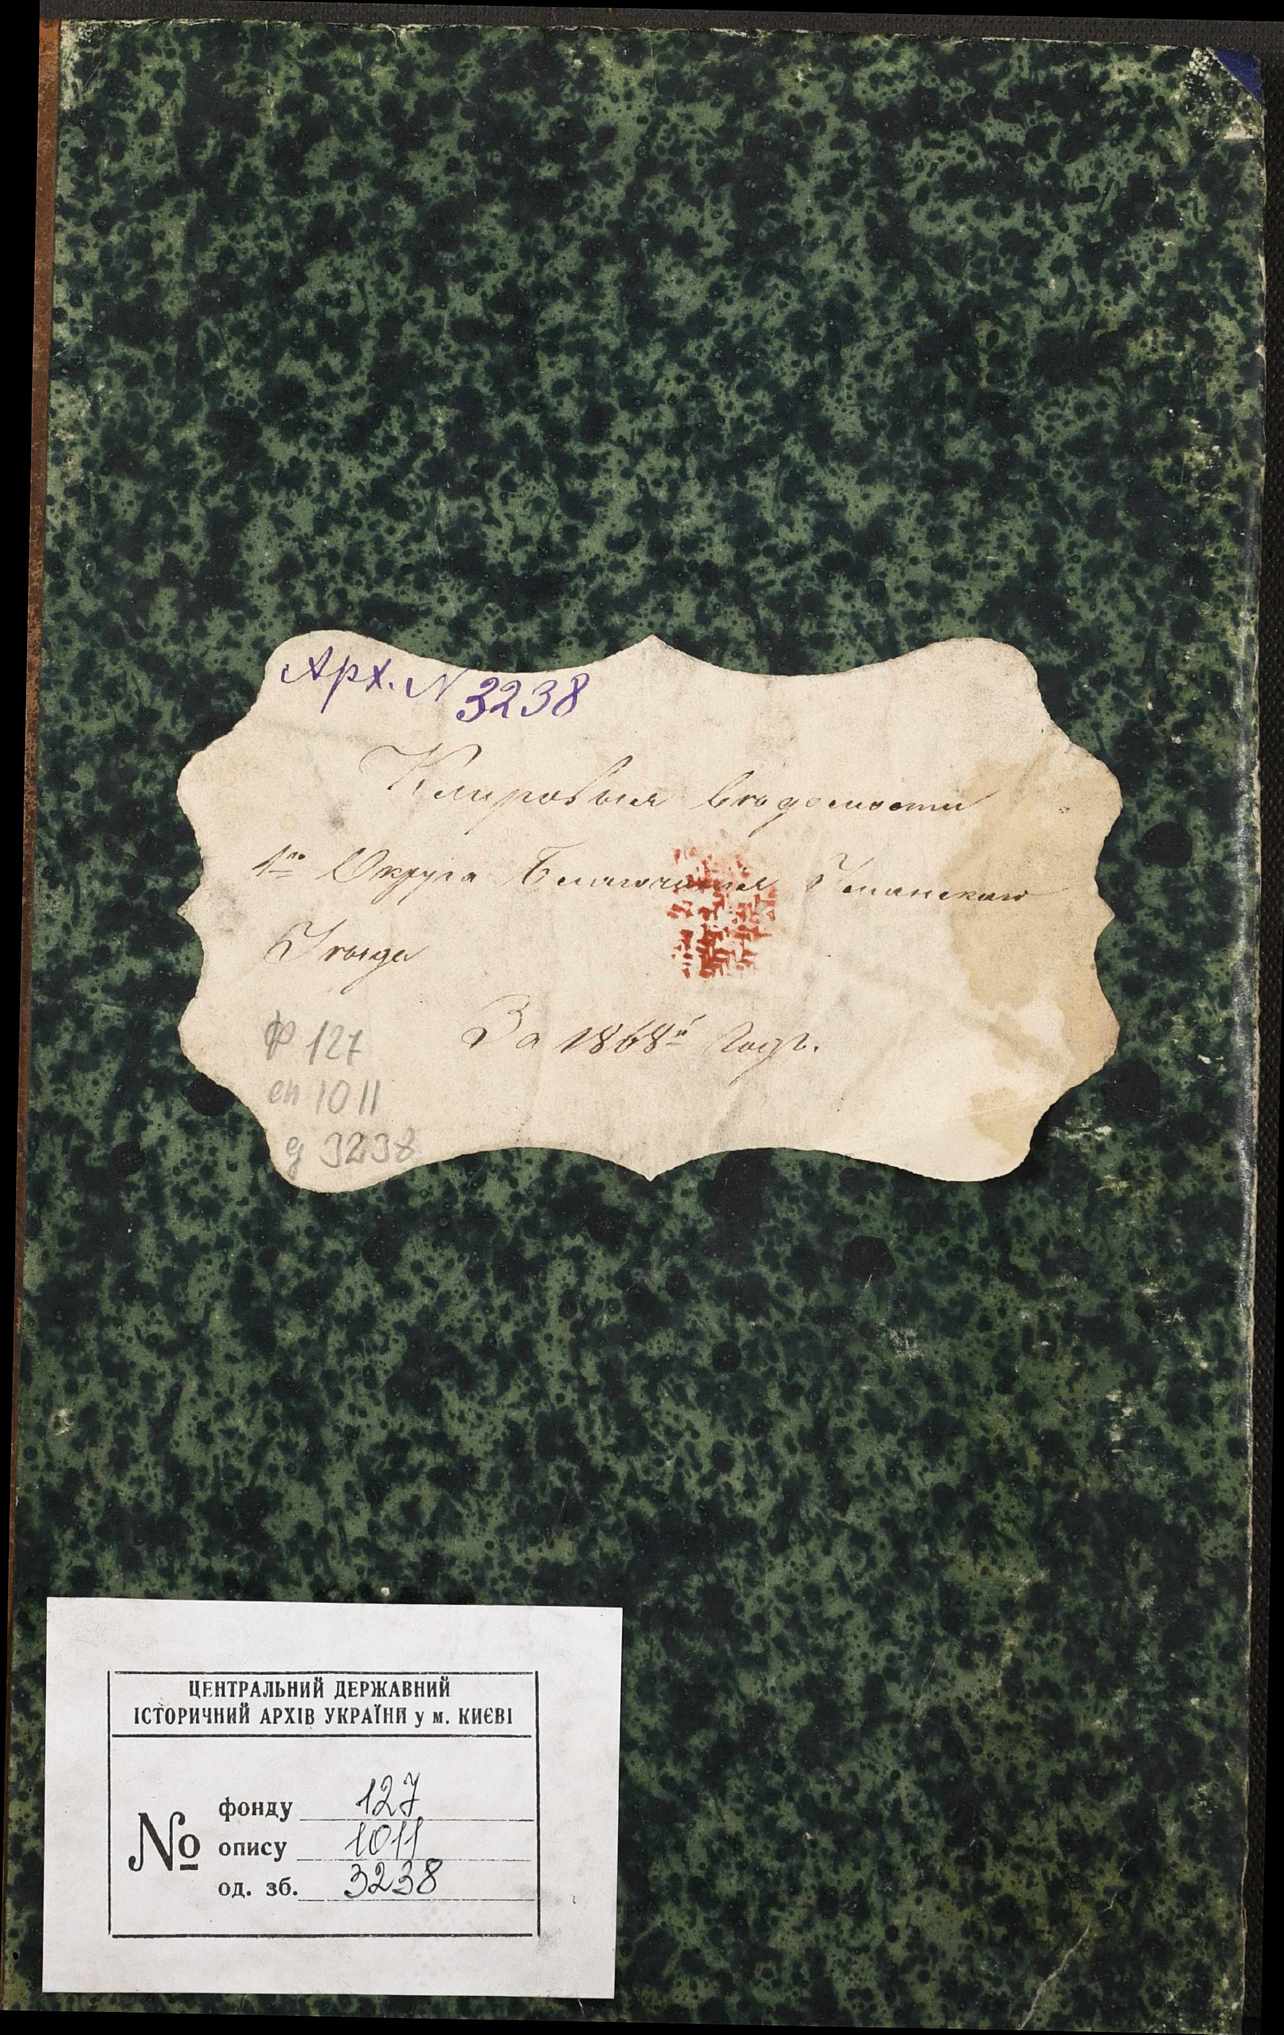 Арх. N 3238
Клировыя Вѣдомости
1го Округа Благочинія Уманскаго
Уѣзда
За 1868й Годъ.
Ф 127
оп 1011
д 3238
ЦЕНТРАЛЬНИЙ ДЕРЖАВНИЙ
ІСТОРИЧНИЙ АРХІВ УКРАЇНИ у м. КИЄВІ
№
фонду 127
опису 1011
од. зб. 3238